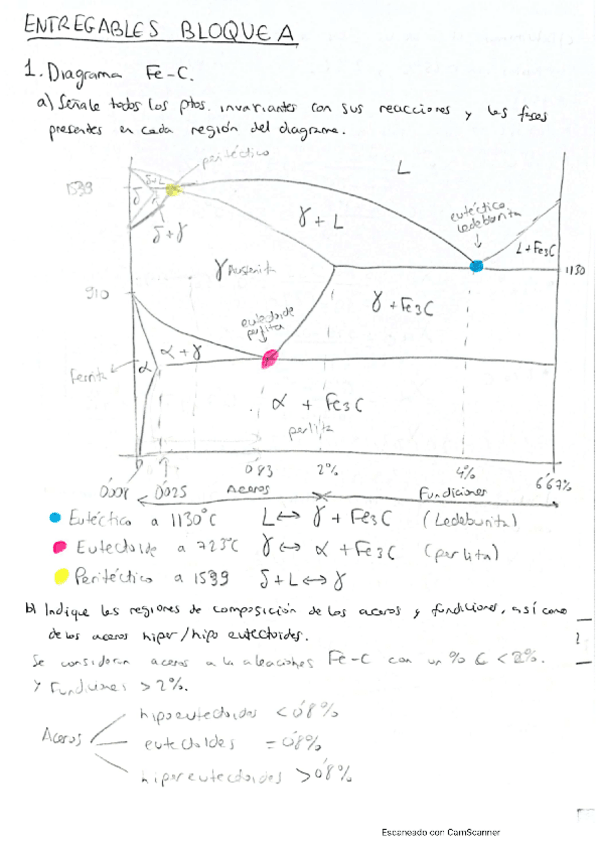 ENTREGABLES BLOQUE A
1. Diagrama Fe-C.
a) Señale todos los ptos. invariantes con sus reacciones y las fases
presentes en cada región del diagrama.
peritéctico
L
1539
δ+L
δ
δ+γ
γ+L
eutéctico
ledeburita
L+Fe3C
1130
910
γ
γ+Fe3C
eutectoide
perlita
Ferrita
α
α+γ
α + Fe3C
perlita
0'008
0'025
0'83
2%
4%
6'67%
Aceros
Fundiciones
Eutéctico a 1130°C L↔γ+Fe3C (Ledeburita)
Eutectoide a 723°C γ↔α+Fe3C (perlita)
Peritéctico a 1539 δ+L↔γ
b) Indique las regiones de composición de los aceros y fundiciones, así como
de los aceros hiper/hipo eutectoides.
Se consideran aceros a la aleaciones Fe-C con un % C <2%.
y Fundiciones >2%.
Aceros
hipoeutectoides <0'8%
eutectoides =0'8%
hipereutectoides >0'8%
Escaneado con CamScanner